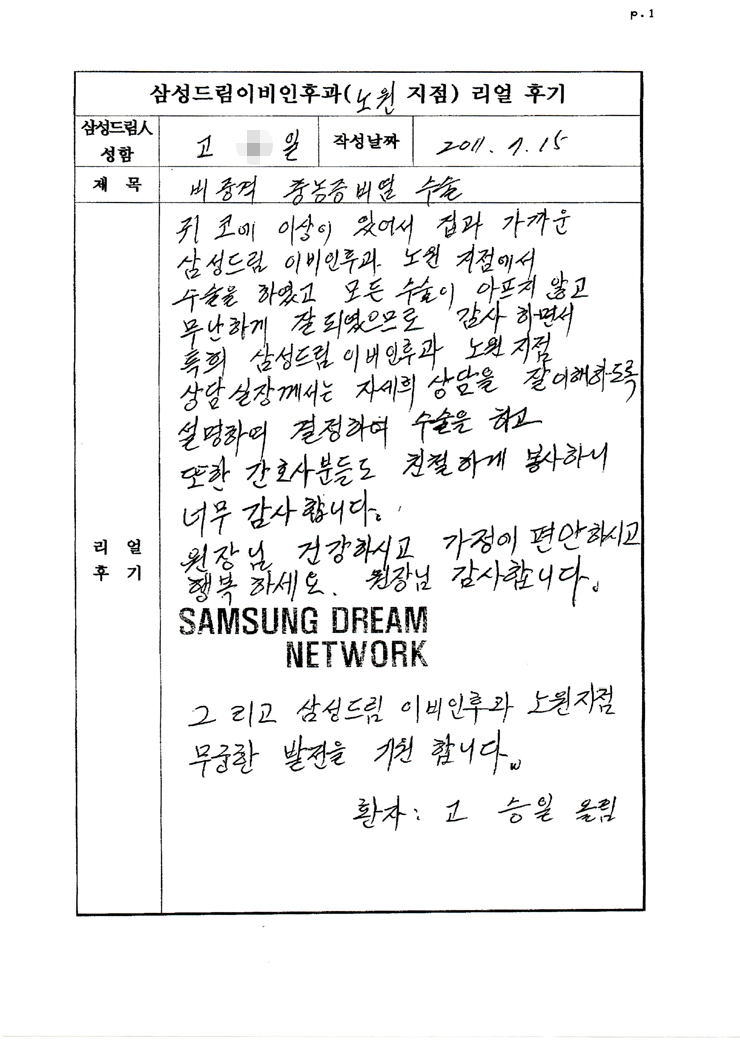 p.1
삼성드림이비인후과(노원 지점) 리얼 후기
삼성드림人 성함 고 일 작성날짜 2011. 7. 15
제 목 비중격 충농증 비염 수술
귀 코에 이상이 있어서 집과 가까운
삼성드림 이비인후과 노원 지점에서
수술을 하였고 모든 수술이 아프지 않고
무난하게 잘 되였으므로 감사 하면서
특희 삼성드림 이비인후과 노원지점
상담실장께서는 자세희 상담을 잘이해하도록
설명하며 결정하여 수술을 하고
또한 간호사분들도 친절하게 봉사하니
너무 감사 합니다.
리 얼 후 기
원장님 건강하시고 가정이 편안하시고
행복 하세요. 원장님 감사합니다.
SAMSUNG DREAM
NETWORK
그리고 삼성드림 이비인후과 노원지점
무궁한 발전을 기원 합니다.
환자: 고 승일 올림